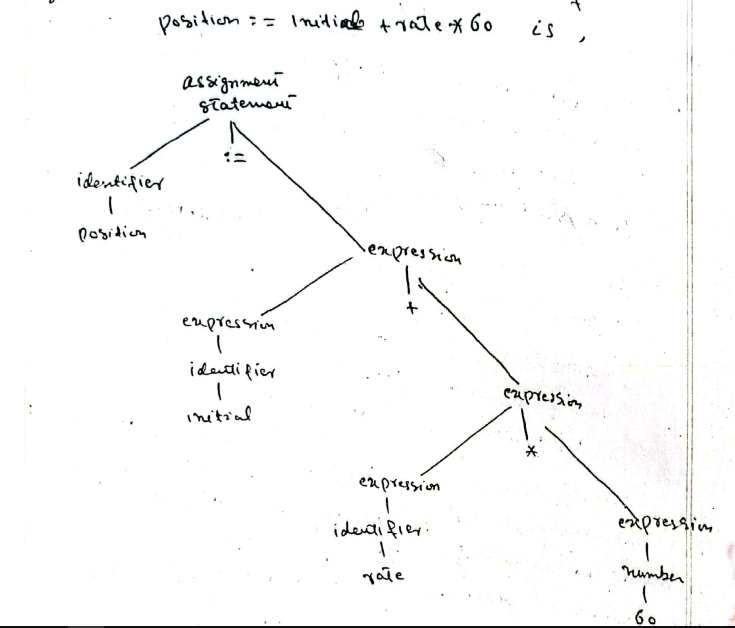 position := initial + rate * 60 is,
assignment
statement
:=
identifier
position
expression
+
expression
identifier
initial
expression
*
expression
identifier
rate
expression
number
60